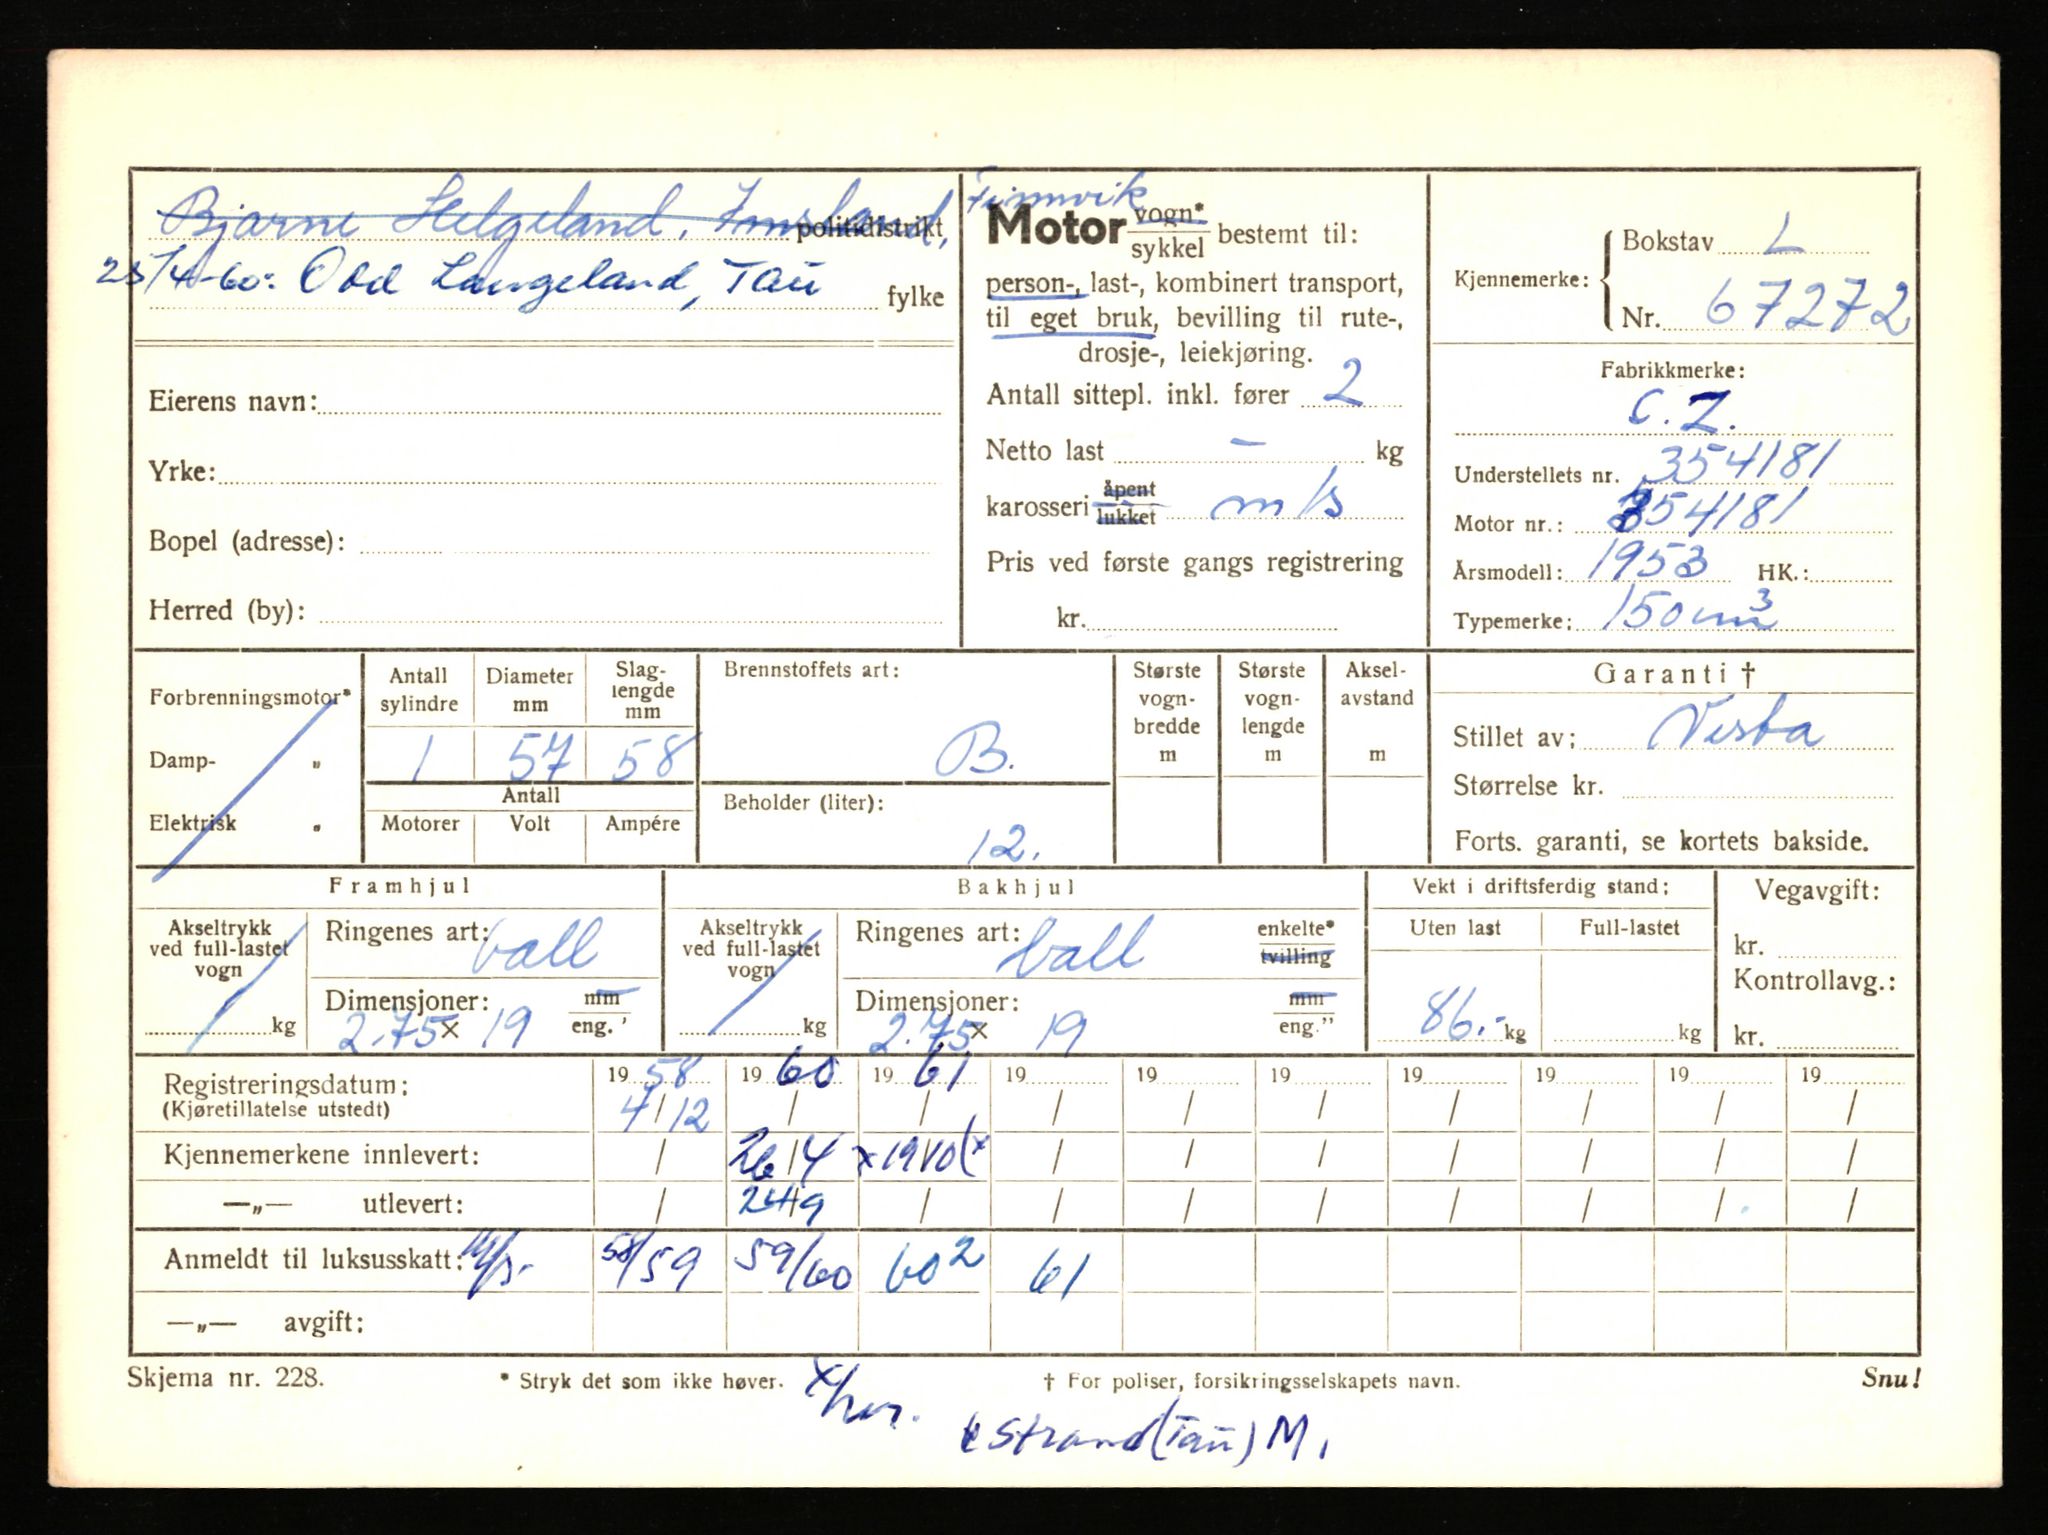 Bjarne Helgeland, Imsland, Finnvik
politidistrikt
25/4-60: Odd Langeland, Tau
fylke
Eierens navn:
Yrke:
Bopel (adresse):
Herred (by):
Motor vogn*
sykkel bestemt til:
person-, last-, kombinert transport,
til eget bruk, bevilling til rute-,
drosje-, leiekjøring.
Antall sittepl. inkl. fører 2
Netto last – kg
karosseri åpent
lukket m/s
Pris ved første gangs registrering
kr.
Kjennemerke: Bokstav L
Nr. 67272
Fabrikkmerke:
C.Z.
Understellets nr. 354181
Motor nr.: 354181
Årsmodell: 1953 HK.:
Typemerke: 150 cm³
Forbrenningsmotor*
Damp- „
Elektrisk „
Antall sylindre Diameter mm Slag-lengde mm
1 57 58
Antall
Motorer Volt Ampére
Brennstoffets art:
B.
Beholder (liter):
12.
Største vogn-bredde m
Største vogn-lengde m
Aksel-avstand m
Garanti †
Stillet av: Vesta
Størrelse kr.
Forts. garanti, se kortets bakside.
Framhjul
Akseltrykk ved full-lastet vogn
kg
Ringenes art: ball
Dimensjoner: mm
2.75 x 19 eng."
Bakhjul
Akseltrykk ved full-lastet vogn
kg
Ringenes art: ball enkelte*
tvilling
Dimensjoner: mm
2.75 x 19 eng."
Vekt i driftsferdig stand:
Uten last Full-lastet
86.- kg kg
Vegavgift:
kr.
Kontrollavg.:
kr.
Registreringsdatum: 19 58 19 60 19 61 19 19 19 19 19 19 19
(Kjøretillatelse utstedt) 4/12 / / / / / / / / /
Kjennemerkene innlevert: / 26/4 x 19/10 (x / / / / / / /
—„— utlevert: / 24/9 / / / / / / / /
Anmeldt til luksusskatt: 58/59 59/60 60² 61
—„— avgift:
Skjema nr. 228. * Stryk det som ikke høver. † For poliser, forsikringsselskapets navn. Snu!
Strand (Tau) M,